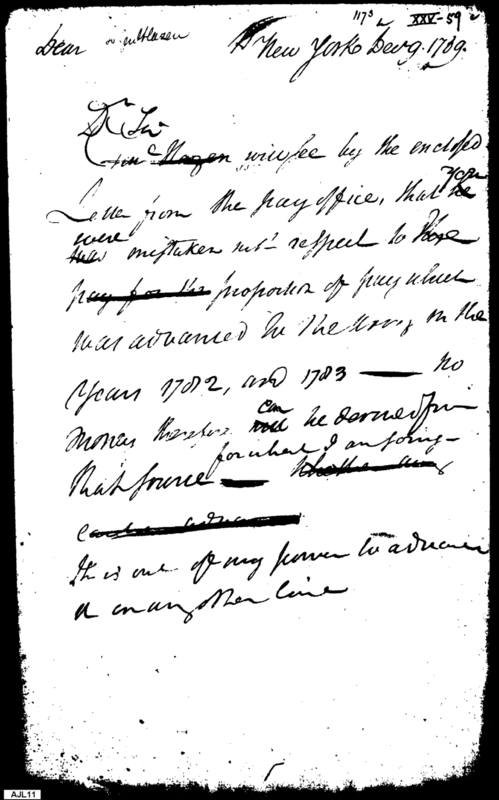 1173 XXV-59
Dear New York Decr 9. 1789.
Dr Sir
Mr Hazen will see by the enclosed
Letter from the pay office, that he you
was were mistaken with respect to the
pay for the proportion of pay which
was advanced to the Army in the
Years 1782, and 1783 — no
money therefore will can be derived from
that source — for what I am going
It is out of my power to advance
it in any other line
AJL11